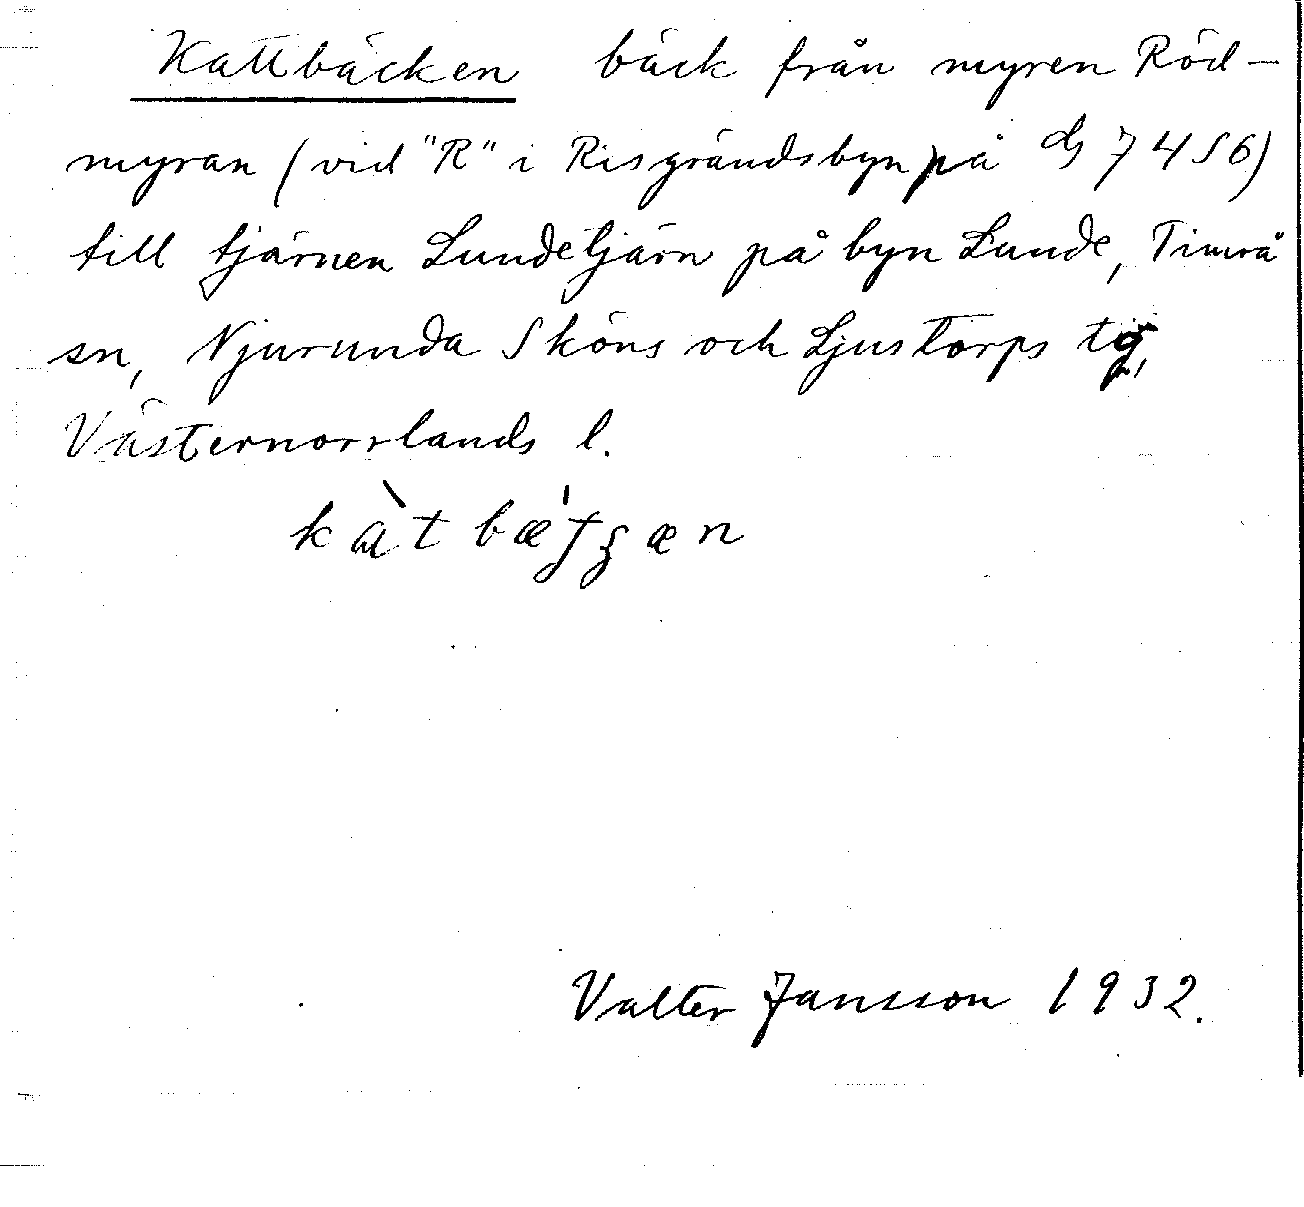 Kattbäcken bäck från myren Röd-
myran (vid "R" i Risgrändsbyn på ds 74 S6)
till tjärnen Lundetjärn på byn Lunde, Timrå
sn, Njurunda Sköns och Ljustorps tg,
Västernorrlands l.
Valter Jansson 1932.